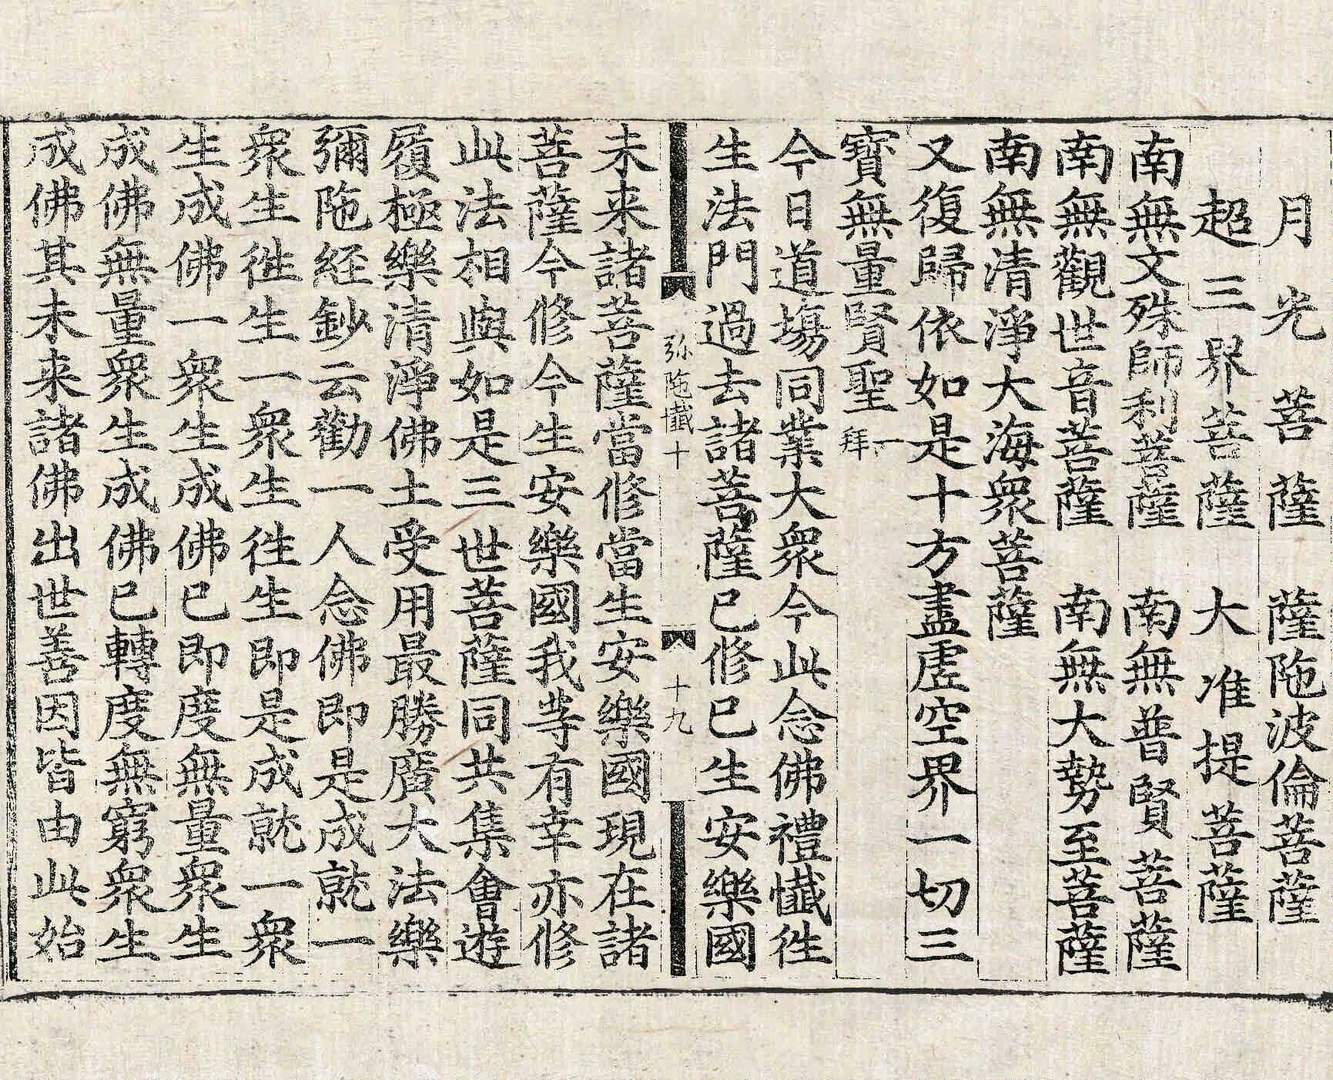 月光菩薩　薩陁波倫菩薩
超三界菩薩　大准提菩薩
南無文殊師利菩薩　南無普賢菩薩
南無觀世音菩薩　南無大勢至菩薩
南無清淨大海衆菩薩
又復歸依如是十方盡虛空界一切三
寶無量賢聖一拜
今日道塲同業大衆今此念佛禮懺徃
生法門過去諸菩薩已修已生安樂國
弥陁懺十　十九
未来諸菩薩當修當生安樂國現在諸
菩薩今修今生安樂國我䒭有幸亦修
此法相與如是三世菩薩同共集會遊
履極樂清淨佛土受用最勝廣大法樂
彌陁經鈔云勸一人念佛即是成就一
衆生徃生一衆生徃生即是成就一衆
生成佛一衆生成佛已即度無量衆生
成佛無量衆生成佛已轉度無窮衆生
成佛其未来諸佛出世善因皆由此始